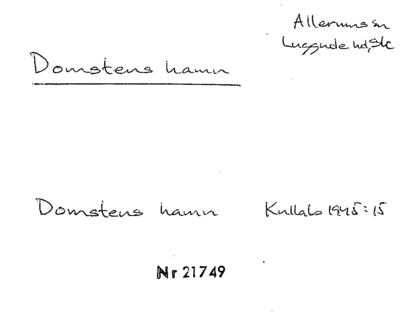 Allerums sn
Luggude hd, Sk
Domstens hamn
Domstens hamn Kullab 1945:15
Nr 21749